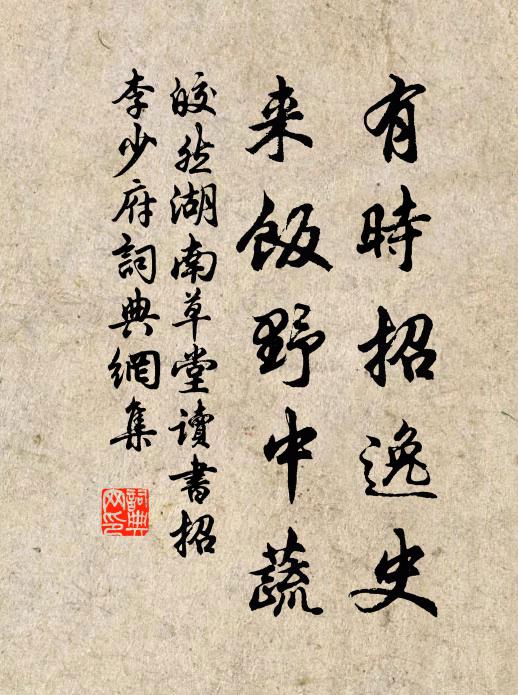 有時招逸史
来飯野中蔬
皎然湖南草堂讀書招
李少府詞典網集
詞典
网印